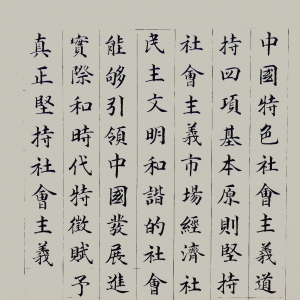 中國特色社會主義道
持四項基本原則堅持
社會主義市場經濟社
民主文明和諧的社會
能够引領中國發展進
實際和時代特徵賦予
真正堅持社會主義